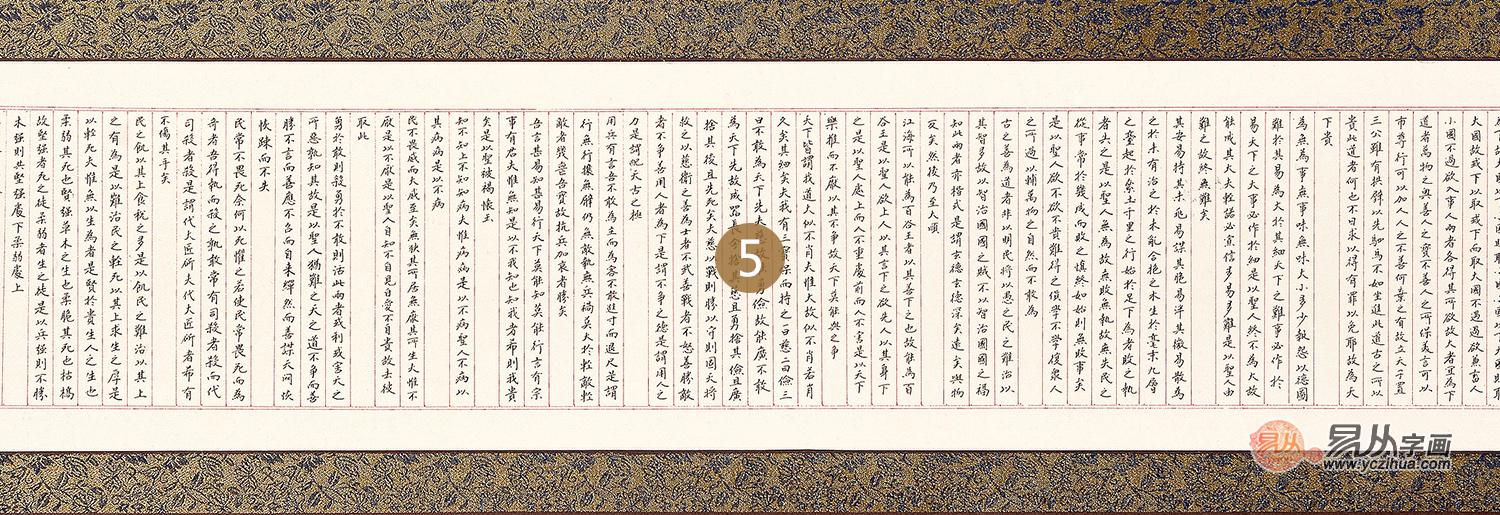 大國故或下以取或下而取大國不過欲兼畜人
小國不過欲入事人兩者各得其所欲大者宜為下
道者萬物之奧善人之寶不善人之所保美言可以
市尊行可以加人人之不善何棄之有故立天子置
三公雖有拱璧以先駟馬不如坐進此道古之所以
貴此道者何也不曰求以得有罪以免耶故為天
下貴
為無為事無事味無味大小多少報怨以德圖
難於其易為大於其細天下之難事必作於
易天下之大事必作於細是以聖人終不為大故
能成其大夫輕諾必寡信多易多難是以聖人由
難之故終無難矣
其安易持其未兆易謀其脆易泮其微易散為
之於未有治之於未亂合抱之木生於毫末九層
之臺起於累土千里之行始於足下為者敗之執
者失之是以聖人無為故無敗無執故無失民之
從事常於幾成而敗之慎終如始則無敗事矣
是以聖人欲不欲不貴難得之貨學不學復眾人
之所過以輔萬物之自然而不敢為
古之善為道者非以明民將以愚之民之難治以
其智多故以智治國國之賊不以智治國國之福
知此兩者亦楷式是謂玄德玄德深矣遠矣與物
反矣然後乃至大順
江海所以能為百谷王者以其善下之也故能為百
谷王是以聖人欲上人以其言下之欲先人以其身下
之是以聖人處上而人不重處前而人不害是以天下
樂推而不厭以其不爭故天下莫能與之爭
天下皆謂我道大似不肖夫惟大故似不肖若肖
久矣其細矣夫我有三寶保而持之一曰慈二曰儉三
曰不敢為天下先夫慈故勇儉故能廣不敢
為天下先故成器長今捨其慈且勇捨其儉且廣
捨其後且先死矣夫慈以戰則勝以守則固天將
救之以慈衛之善為士者不武善戰者不怒善勝敵
者不爭善用人者為下是謂不爭之德是謂用人之
力是謂配天古之極
用兵有言吾不敢為主而為客不敢進寸而退尺是謂
行無行攘無臂仍無敵執無兵禍莫大於輕敵輕
敵者幾喪吾寶故抗兵加哀者勝矣
吾言甚易知甚易行天下莫能知莫能行言有宗
事有君夫惟無知是以不我知也知我者希則我貴
矣是以聖被褐懷玉
知不知上不知知病夫惟病病是以不病聖人不病以
其病病是以不病
民不畏威而大威至矣無狹其所居無厭其所生夫惟不
厭是以不厭是以聖人自知不自見自愛不自貴故去彼
取此
勇於敢則殺勇於不敢則活此兩者或利或害天之
所惡孰知其故是以聖人猶難之天之道不爭而善
勝不言而善應不召而自來繟然而善謀天網恢
恢疎而不失
民常不畏死奈何以死懼之若使民常畏死而為
奇者吾得執而殺之孰敢常有司殺者殺而代
司殺者殺是謂代大匠斲夫代大匠斲者希有
不傷其手矣
民之飢以其上食稅之多是以飢民之難治以其上
之有為是以難治民之輕死以其上求生之厚是
以輕死夫惟無以生為者是賢於貴生人之生也
柔弱其死也堅強草木之生也柔脆其死也枯槁
故堅強者死之徒柔弱者生之徒是以兵強則不勝
木強則共堅強處下柔弱處上
5
易从
易从字画
www.yczihua.com